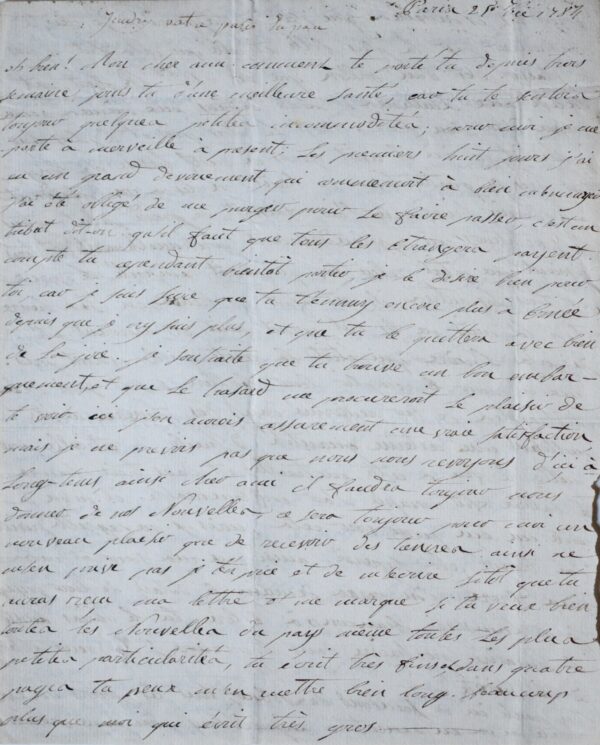 Paris 25
eh bien! Mon cher ami comment te porte tu depuis trois
semaine, jouis tu d'une meilleure santé, car tu te sentoia
toujour quelquea petitea incommoditéa, pour moi je me
porte à merveille à present. Les premiers huit jours j'ai
eu un grand devoiement, qui commencoit à bien
j'ai été obligé de me purger pour le faire passer, c'est un
tribut dit-on qu'il faut que tous les Etrangera payent.
compte tu cependant bientôt partir, je le desire bien pour
toi, car je suis que tu t'ennuy encore plus à
depuis que je n'y suis plus, et que tu le quittera avec bien
de la joie. je souhaite que tu trouve un bon embar-
quement, et que le hasard me procureroit le plaisir de
te voir j'en aurois assurement une vraie satisfaction
mais je ne prevois pas que nous nous revoyons d'ici à
long-tems ainsi cher ami il faudra toujour nous
donner de nos Nouvellea, ce sera toujour pour moi un
nouveau plaisir que de recevoir des tiennea, ainsi ne
m'en prive pas je t'en prie et de m'ecrire sitôt que tu
auras recu ma lettre et me marque si tu veux bien
toutea les Nouvellea du pays même toutes les plua
petitea particularitéa, tu écrit très fin, dans quatre
pagea tu peux m'en mettre bien long. beaucoup
plus que moi qui écrit très gros